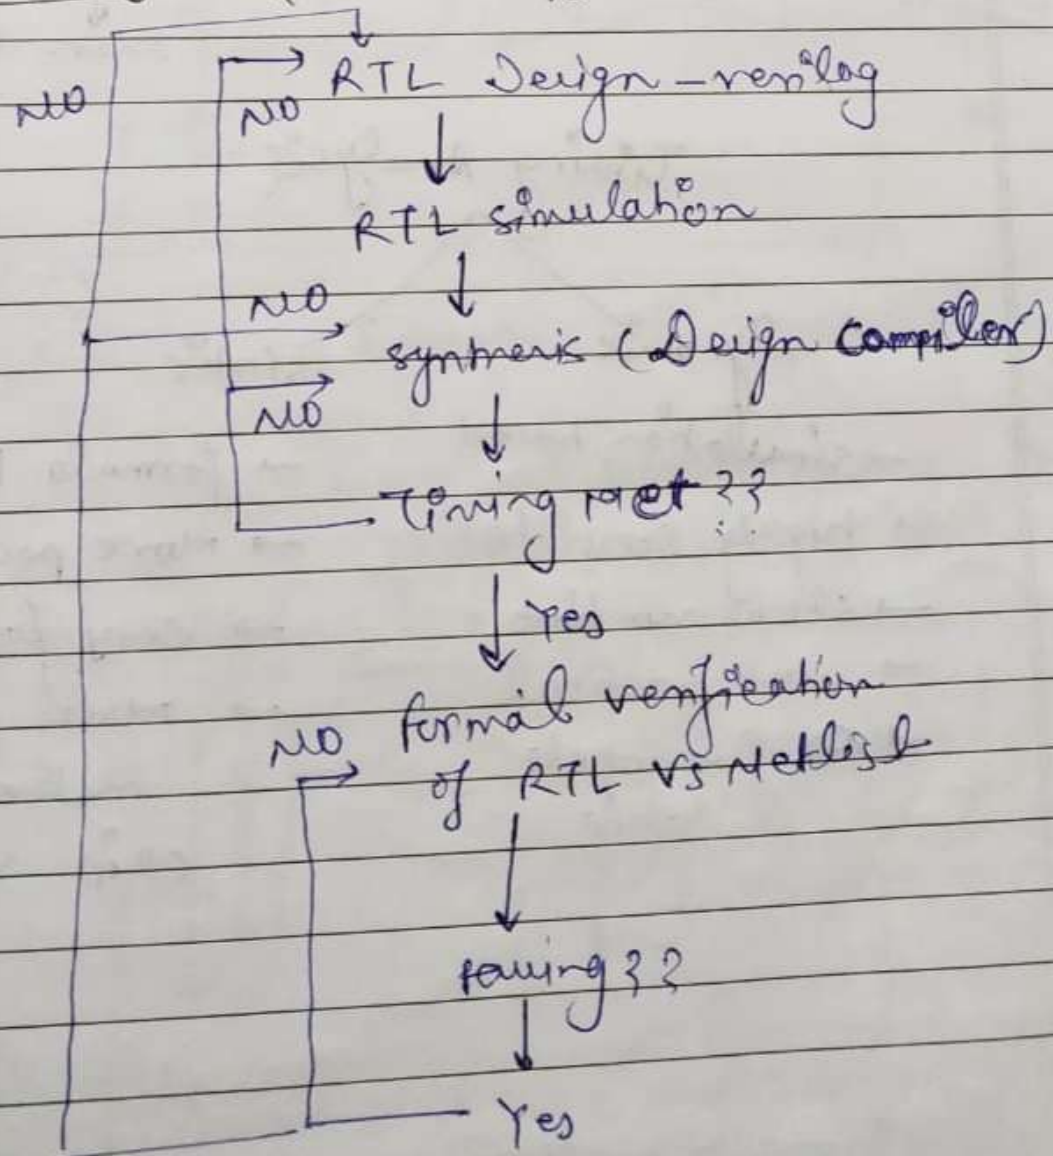 NO
NO
RTL Design - verilog
RTL simulation
NO
synthesis (Design Compiler)
NO
Timing met ??
Yes
formal verification
NO
of RTL Vs Netlist
??
Yes